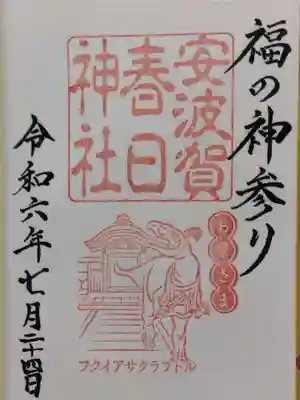 福の神参り
安波賀
春日
神社
フクイアサクラプトル
令和六年七月二十四日